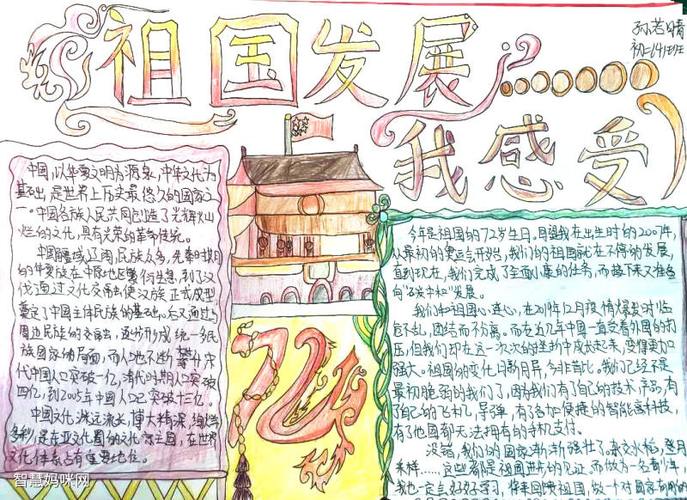 祖国发展
我感受
孙若晴
初二141班
中国,以华夏文明为源泉,中华文化为
基础,是世界上历史最悠久的国家之
一。中国各族人民共同创造了光辉灿
烂的文化,具有光荣的革命传统。
中国疆域辽阔,民族众多,先秦时期
的华夏族在中原地区繁衍生息,到了汉
代通过文化交融使汉族正式成型
奠定了中国主体民族的基础。后又通过与
周边民族的交融,逐步形成统一多民
族国家的局面,而人口也不断攀升,宋
代中国人口突破一亿,清代时期人口突破
四亿,到2005年中国人口突破十三亿。
中国文化渊远流长、博大精深、绚烂
多彩,是东亚文化圈的文化宗主国,在世界
文化体系占有重要地位。
今年是祖国的72岁生日,回望我在出生时的2007年
从最初的奥运会开始,我们的祖国就在不停的发展,
直到现在,我们完成了全面小康的任务,而接下来又准备
向"碳中和"发展。
我们和祖国心连心,在2019年12月疫情爆发时临
危不乱,团结而不分离。而在近几年中国一直受着外国的打
压,但我们却在这一次次的挫折中成长起来,变得更加
强大。祖国的变化日新月异,今非昔比。我们已经不是
最初脆弱的我们了,因为我们有了自己的技术、产品,有
了自己的飞机,导弹,有了各加便捷的智能高科技,
有了他国都无法拥有的手机支付。
没错,我们的国家渐渐强壮了。杂交水稻,登月
采样……这些都是祖国进步的见证,而做为一名青少年,
我也一定会好好学习,将来回馈祖国,做一个对国家有用的
智慧妈咪网